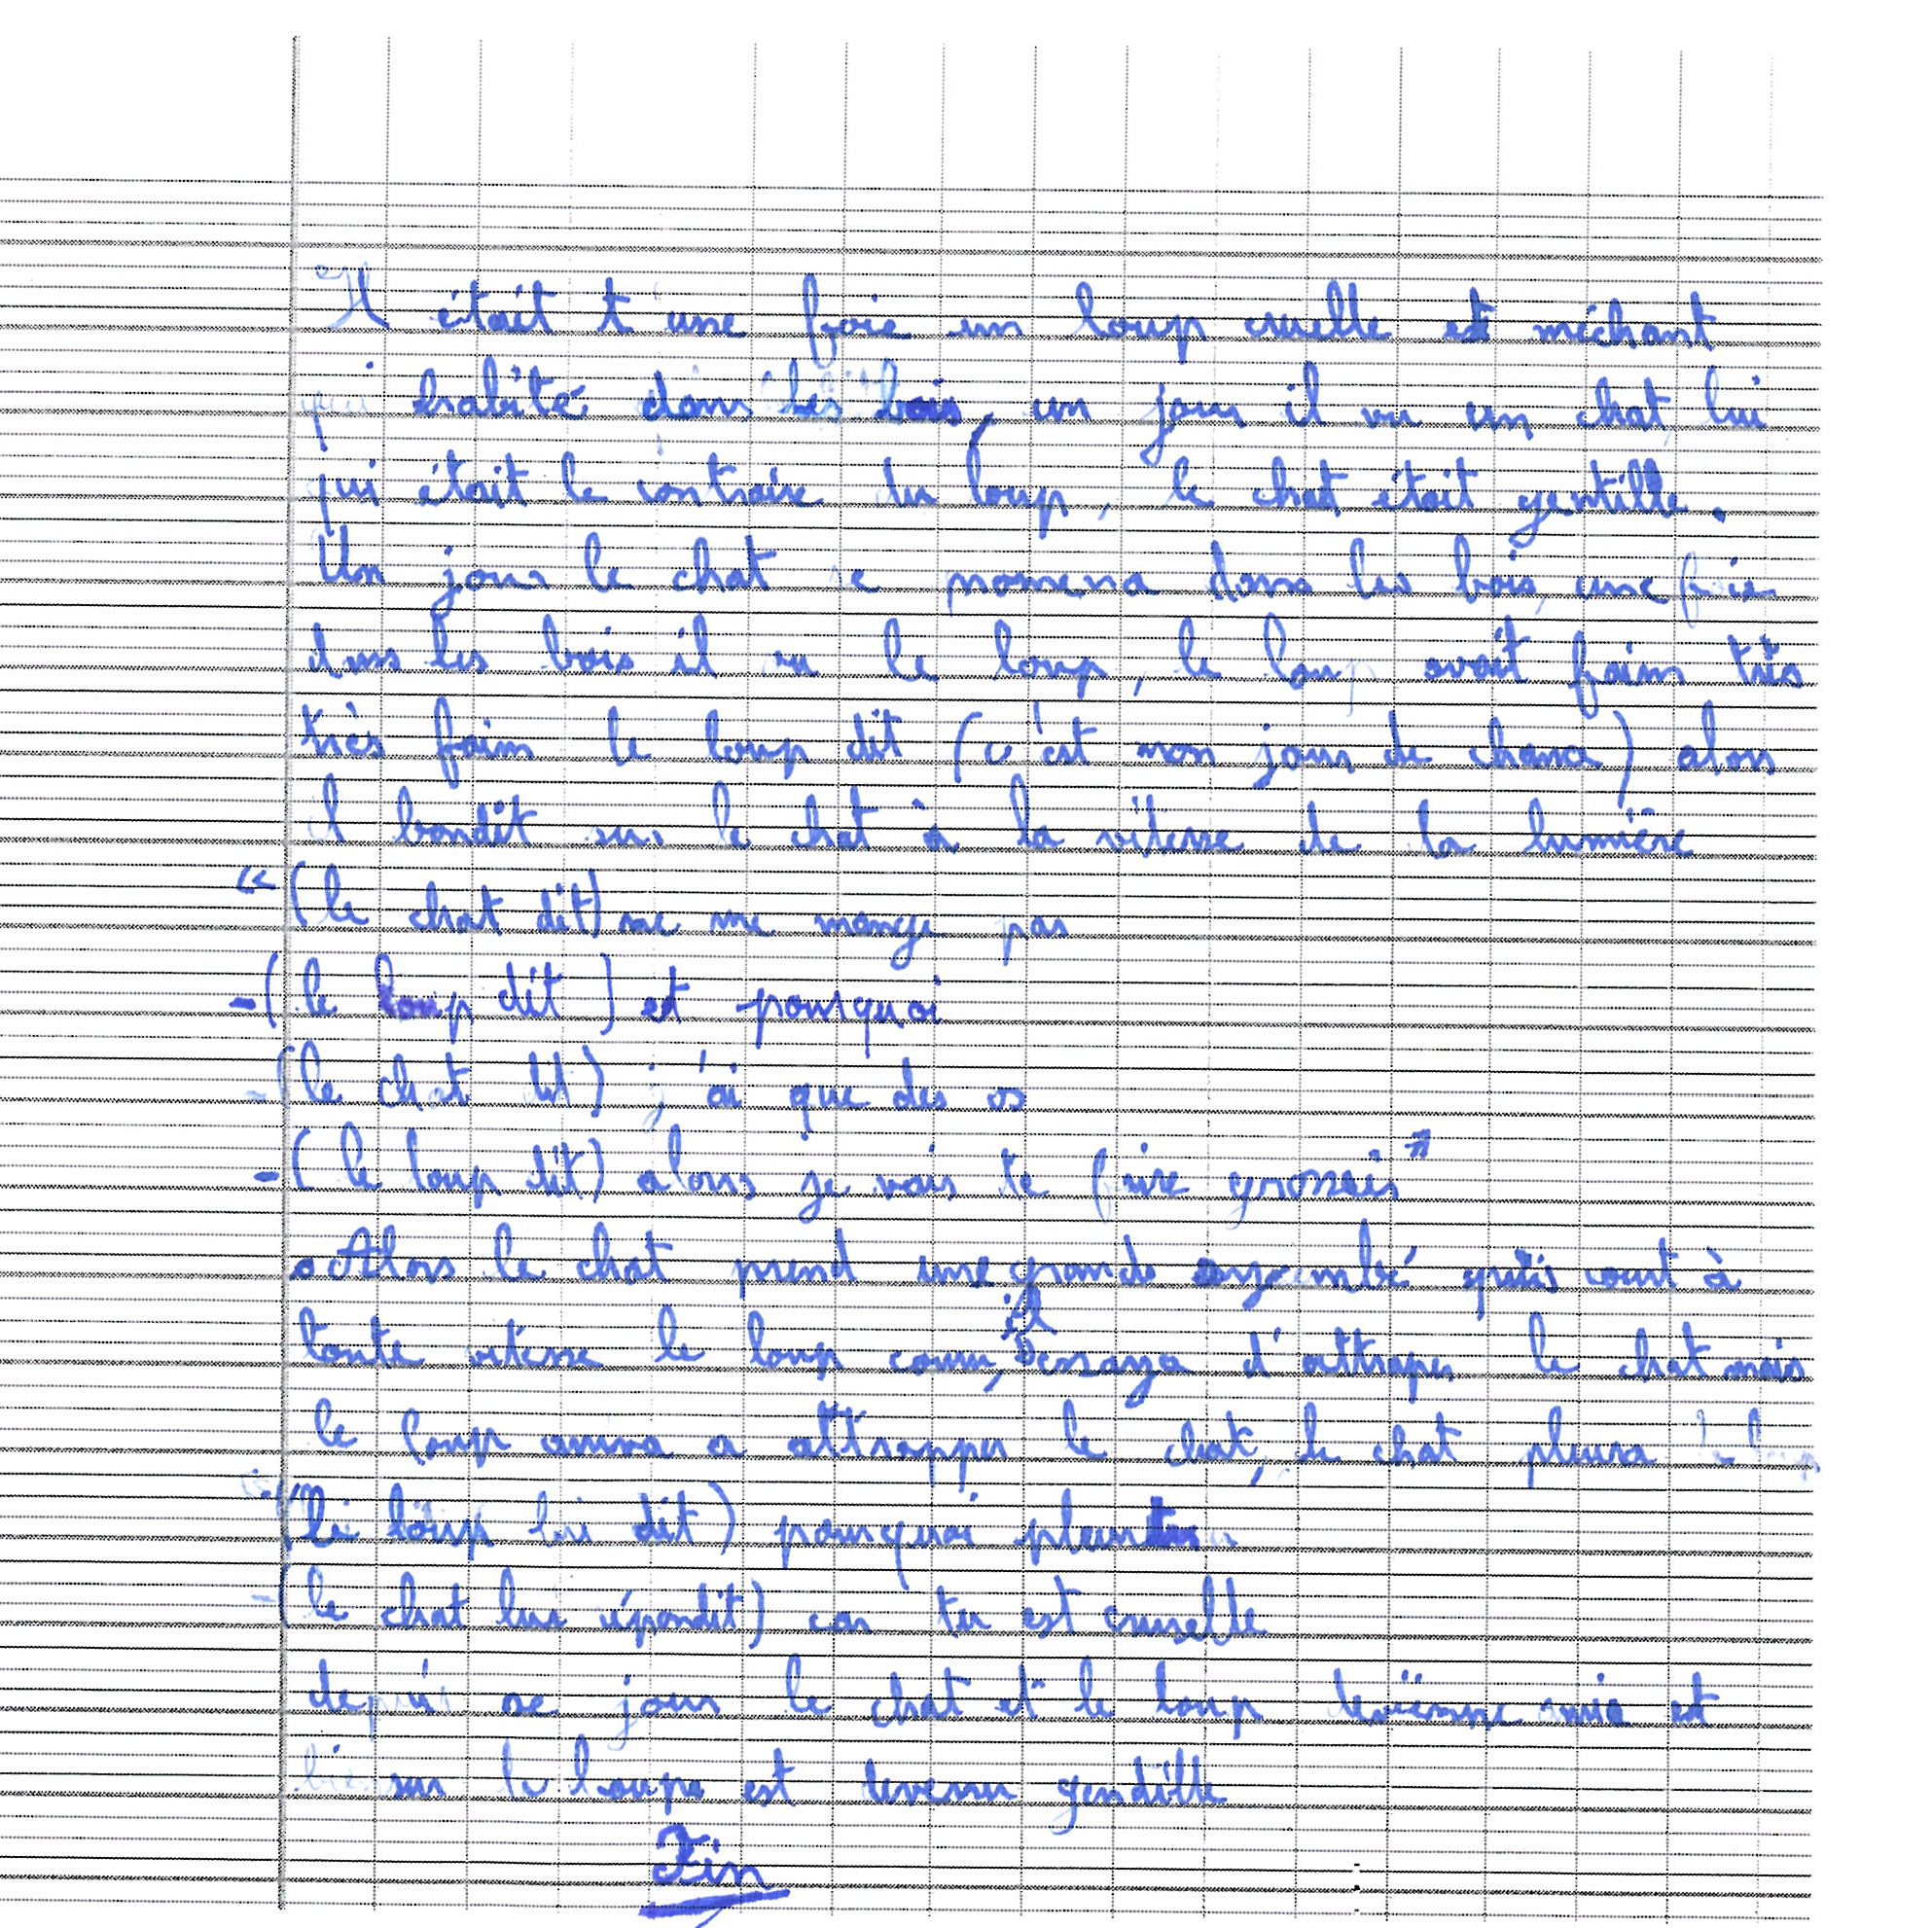 Il était t'une foie un loup cruelle et méchant
qui habité dans les bois, un jour il vu un chat, lui
qui était le contraire du loup, le chat était gentille.
Un jour le chat se promena dans les bois, une foie
dans les bois il vu le loup, le loup avait faim très
très faim le loup dit (c'est mon jour de chance) alors
il bondit sur le chat à la vitesse de la lumière
« (le chat dit) ne me mange pas
-(le loup dit) et pourquoi
-(le chat dit) j'ai que des os
-(le loup dit) alors je vais te faire grossir »
Alors le chat prend une grande enjembé puis court à
toute vitesse le loup couru, il essaya d'attraper le chat mais
le loup arriva a attrapper le chat, le chat pleura le loup
(le loup lui dit) pourquoi pleur tu
-(le chat lui répondit) car tu est cruelle
depuis se jour le chat et le loup devienne amie et
bien sur le loup est devenu gentille
Fin